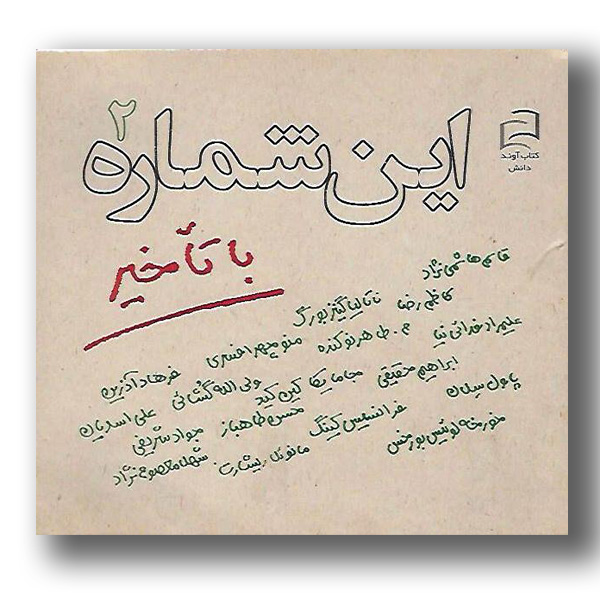 ۲
این شماره
کتاب آوند
دانش
با تأخیر
قاسم هاشمی‌نژاد
کاظم رضا ناتالیا گینزبورگ
علیمراد فدائی نیا م. طاهر نوکنده منوچهر افسری فرهاد آذرین
ابراهیم حقیقی جامائیکا کین کید ولی الله گشائی علی اسدیان
پاول سلان فرانسیس کینگ محسن طاهباز جواد شریفی
خورخه لوئیس بورخس مانوئل ریشارت شهلا معصوم نژاد